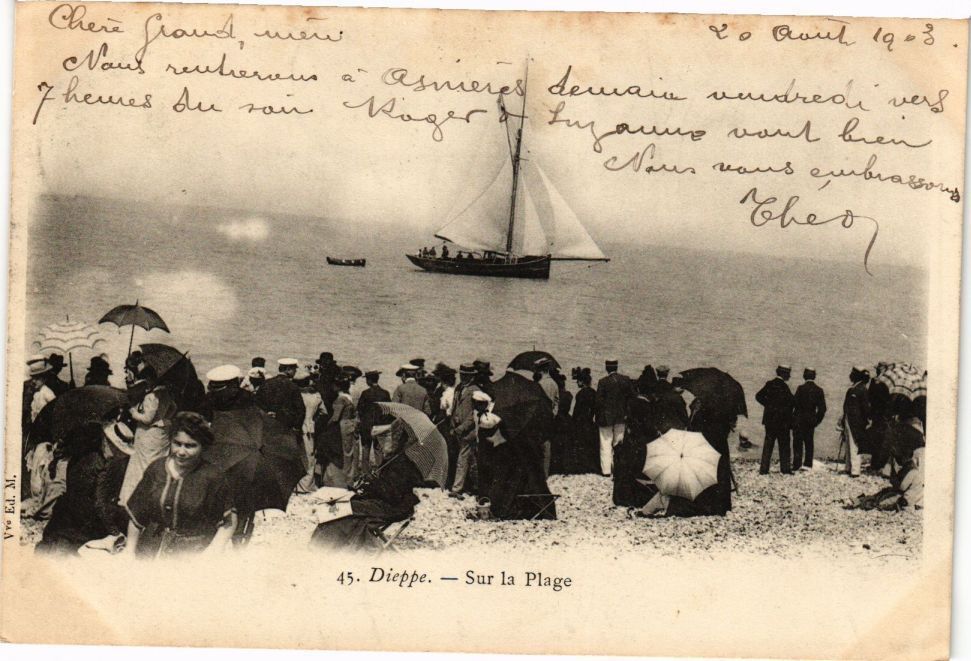 Chère Grand, mère
20 Août 1903.
Nous rentrerons à Asnières demain vendredi vers
7 heures du soir Roger & Suzanne vont bien
Nous vous embrassons
Théo
45. Dieppe. — Sur la Plage
Vve Ed. M.